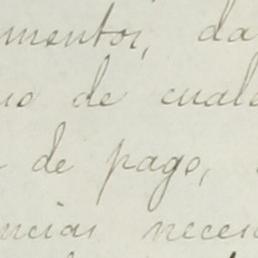 mentos, da
no de cuale
de pago,
ncias neces